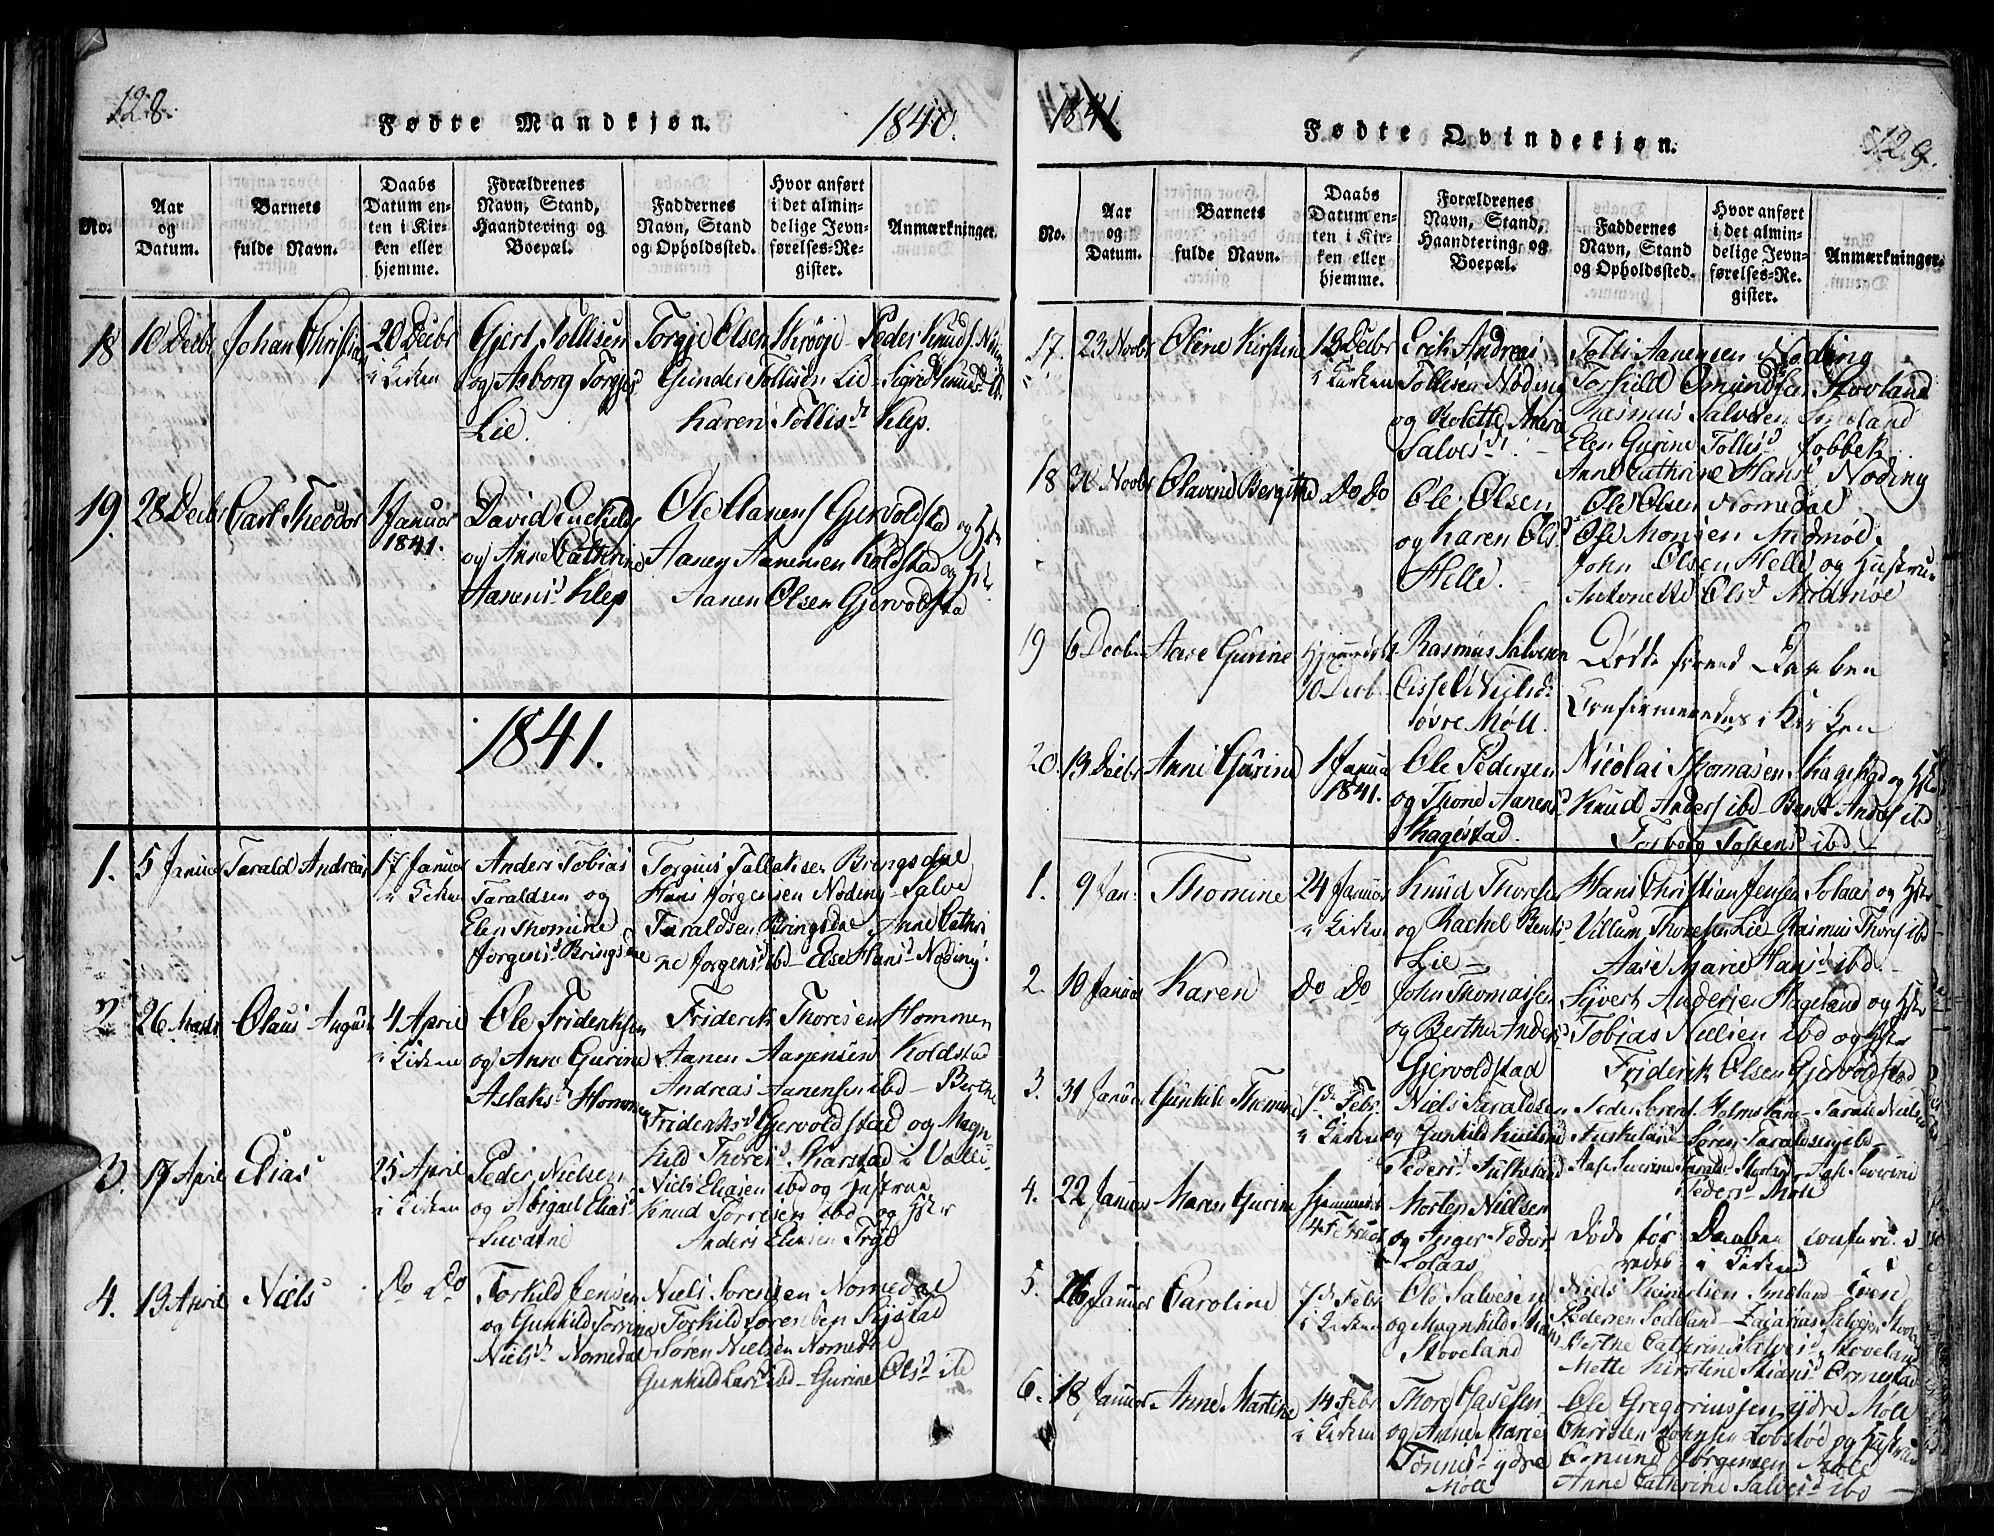 128.
Fødte Mandkjøn.
1840.
No.
Aar og Datum.
Barnets fulde Navn.
Daabs Datum enten i Kirken eller hjemme.
Forældrenes Navn, Stand, Haandtering og Boepæl.
Faddernes Navn, Stand og Opholdssted.
Hvor anført i det almindelige Jevnførelses-Register.
Anmærkninger.
18 10 Decbr Johan Christian 20 Decbr i Kirken
Gjert Tollisen og Asborg Torgjes Lie.
Torgje Olsen Skrøje - Peder Knuds
Gunder Tollisen Lie - Sigred Knudsd
Karen Tollisd Klep.
19. 28 Decbr Carl Theodor 1 Januar 1841.
David
og Anne Cathrine
Aanensd Klep
Ole Aanens Gjervoldstad og
Aanen Aanensen Koldstad og
Aanen Olsen Gjervoldsta
1841.
1. 5 Januar Tarald Andreas 17 Januar i Kirken
Anders Tobias Taraldsen og
Elen Thomine
Jørgensd Bringsdne
Torguis Tallaksen Bringsdne
Hans Jørgensen Nøding - Salve
Taraldsen Bringsdne, Anne Cathri
ne Jørgensd ibd - Else Hansd Nøding.
2. 26 Marts Olaus August 4 April i Kirken
Ole Friderichsen
og Anne Gurine
Aslaksd Hommen
Friderik Thoresen Hommen
Aanen Aanensen Koldstad
Andreas Aanensen ibd - Berthe
Frideriksd Gjervoldstad og Magn
hild Thoresd Skarstad i Valle
3. 17 April Elias 25 April i Kirken
Peder Nielsen
og Abigael Eliasd
Niels Eliasen ibd og Hustrue
Knud Torresen ibd og Hstr
Anders Eliasen Trye
4. 13 April Niels Do Do
Torkild Jensen
og Gunhild Torrine
Nielsd Nomedal
Niels Sørensen Nomedal
Torkild Sørensen
Søren Nielsen Nomedal
Gunhild Larsd ibd - Gurine Olsd ibd
1841
Fødte Qvindekjøn.
129.
No.
Aar og Datum.
Barnets fulde Navn.
Daabs Datum enten i Kirken eller hjemme.
Forældrenes Navn, Stand, Haandtering og Boepæl.
Faddernes Navn, Stand og Opholdssted.
Hvor anført i det almindelige Jevnførelses-Register.
Anmærkninger.
17. 23 Novbr Oline Kirstine 13 Decbr i Kirken
Erik Andreas
Tollisen Nøding
og Anne
Salvesd.
Tolli Aanensen Nøding
Torkild Omundsen Stovland
Rasmus Salvesen
Elen Gurine Tollisd Jobbek
Anne Cathrine Hansd Nøding
18 Novbr Olavine Bergithe Do Do
Ole Olsen
og Karen Olsd
Helle.
Ole Olsen Nomedal
Ole Monsen Midmøe
John Olsen Helle og Hustrue
Antonette Olsd Midmøe
19 6 Decbr Aase Gurine Hjemmedøbt 10 Decb.
Rasmus Salvesen
Øvre Møll.
Døde førend Daaben
Confirmeredes i Kirken
20. 13 Decbr Anne Gurine 1 Januar 1841.
Ole Pedersen
og Thone Aanensd
Skagestad.
Nicolai Thomasen Skagestad og
Knud Anders ibd - Bent Anders ibd
Torborg Tostensd ibd
1. 9 Jan: Thomine 24 Januar i Kirken
Knud Thoresen
og Rachel Bentsd
Lie
Hans Christian Jensen Solaas og Hstr
Villum Thoresen Lie Rasmus Thores ibd
Aase Marie Hansd ibd
2. 10 Januar Karen Do Do
John Thomassen
og Berthe Andersd
Gjervoldstad
Sivert Andersen Hageland og Hstr
Tobias Nielsen ibd og Hstr
Friderik Olsen Gjervoldstad
3. 31 Januar Gunhild Thomine 7de Febr i Kirken
Niels Taraldsen
og Gunhild
Pedersd
Peder Sørens Holmstrøm - Tarald Nielsen
Søren Taraldsen ibd
Aase Severine
Pedersd Møll
4. 22 Januar Maren Gurine Hjemmedøbt 4 Februar
Morten Nielsen
og Inger Pedersd
Solaas
Døde før Daaben confirme
redes i Kirken
5. 26 Januar Caroline 7de Febr i Kirken
Ole Salvesen
og Magnhild Stians
Stoveland
Niels Reiersen Smeland - Even
Pedersen - Zacarias Salvesen
Berthe Cathrine Salvesd Stoveland
Mette Kirstine Stiansd
6. 18 Januar Anne Martine 14 Febr i Kirken
Thore Aasesen
og Anne Marie
Tønnesd ydre
Møll
Ole Gregoriussen ydre Møll
Christen Johnsen og Hustrue
Omund Jørgensen Møll
Anne Cathrine Salvesd ibd